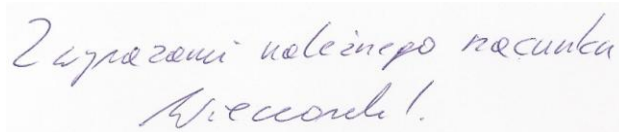 Z wyrazami należnego szacunku
Wieczorek!